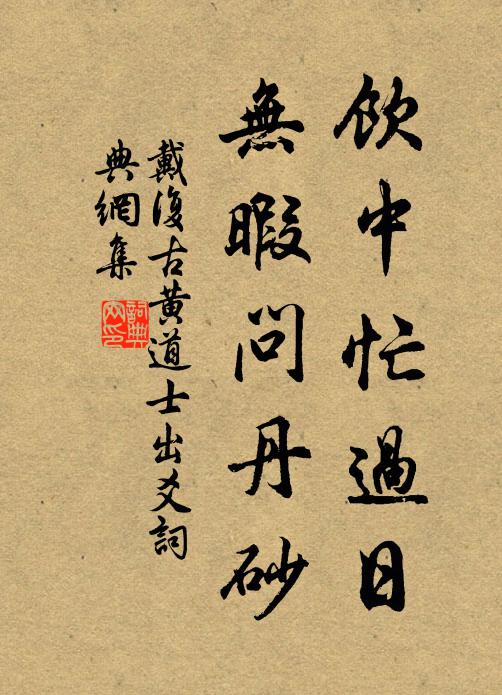 飲中忙過日
無暇問丹砂
戴復古黃道士出爻詞
典網集
詞典
网印